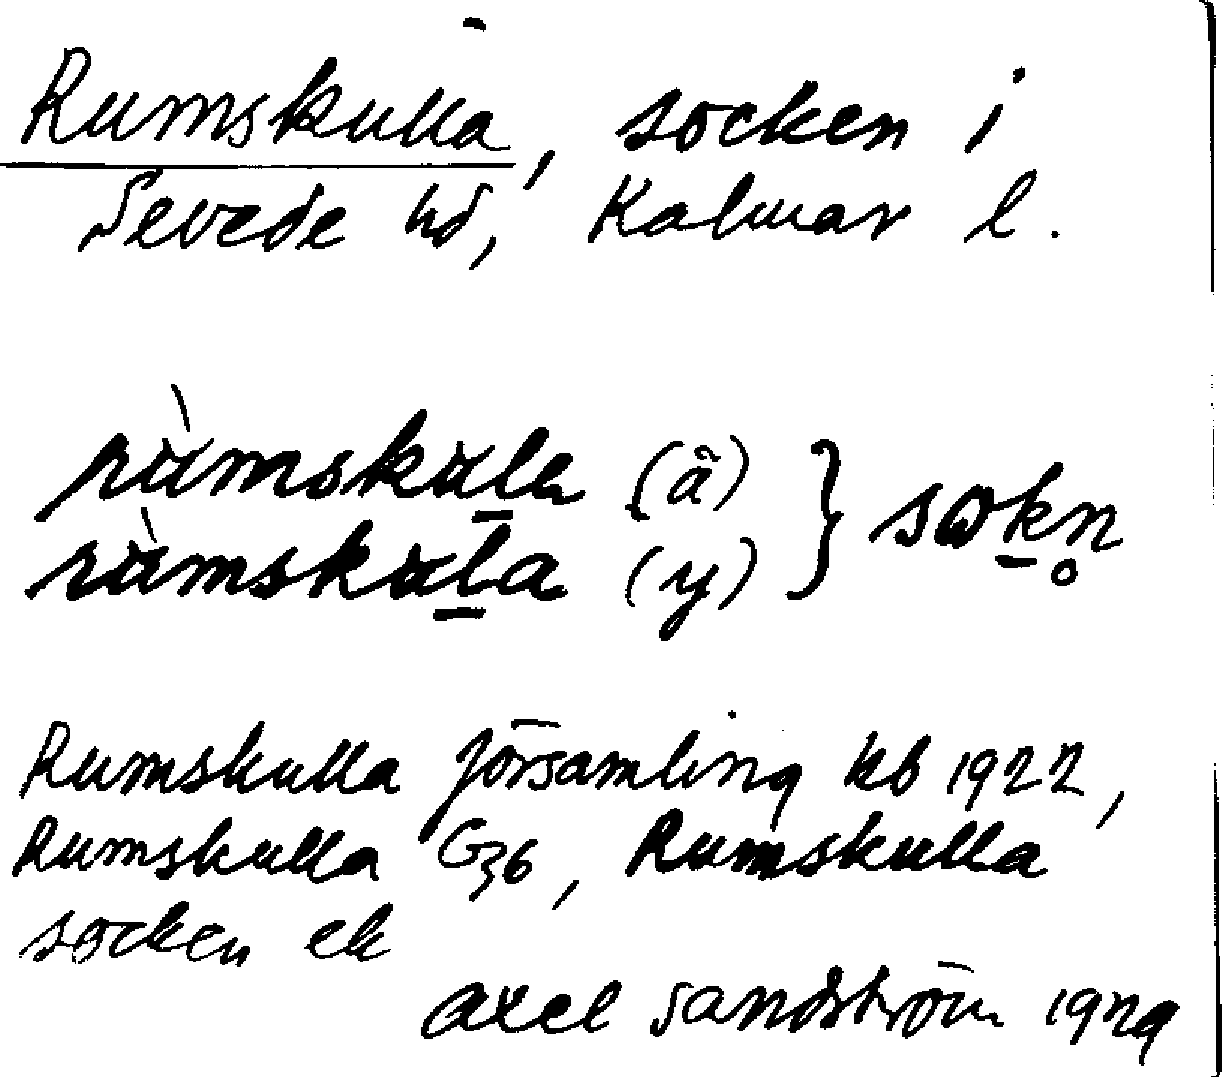 Rumskulla, socken i
Sevede hd, Kalmar l.
rùmskula (ä) } sωkn̥
rùmskula (y)
Rumskulla församling kb 1922,
Rumskulla G36, Rumskulla
socken ek
Axel Sandström 1929